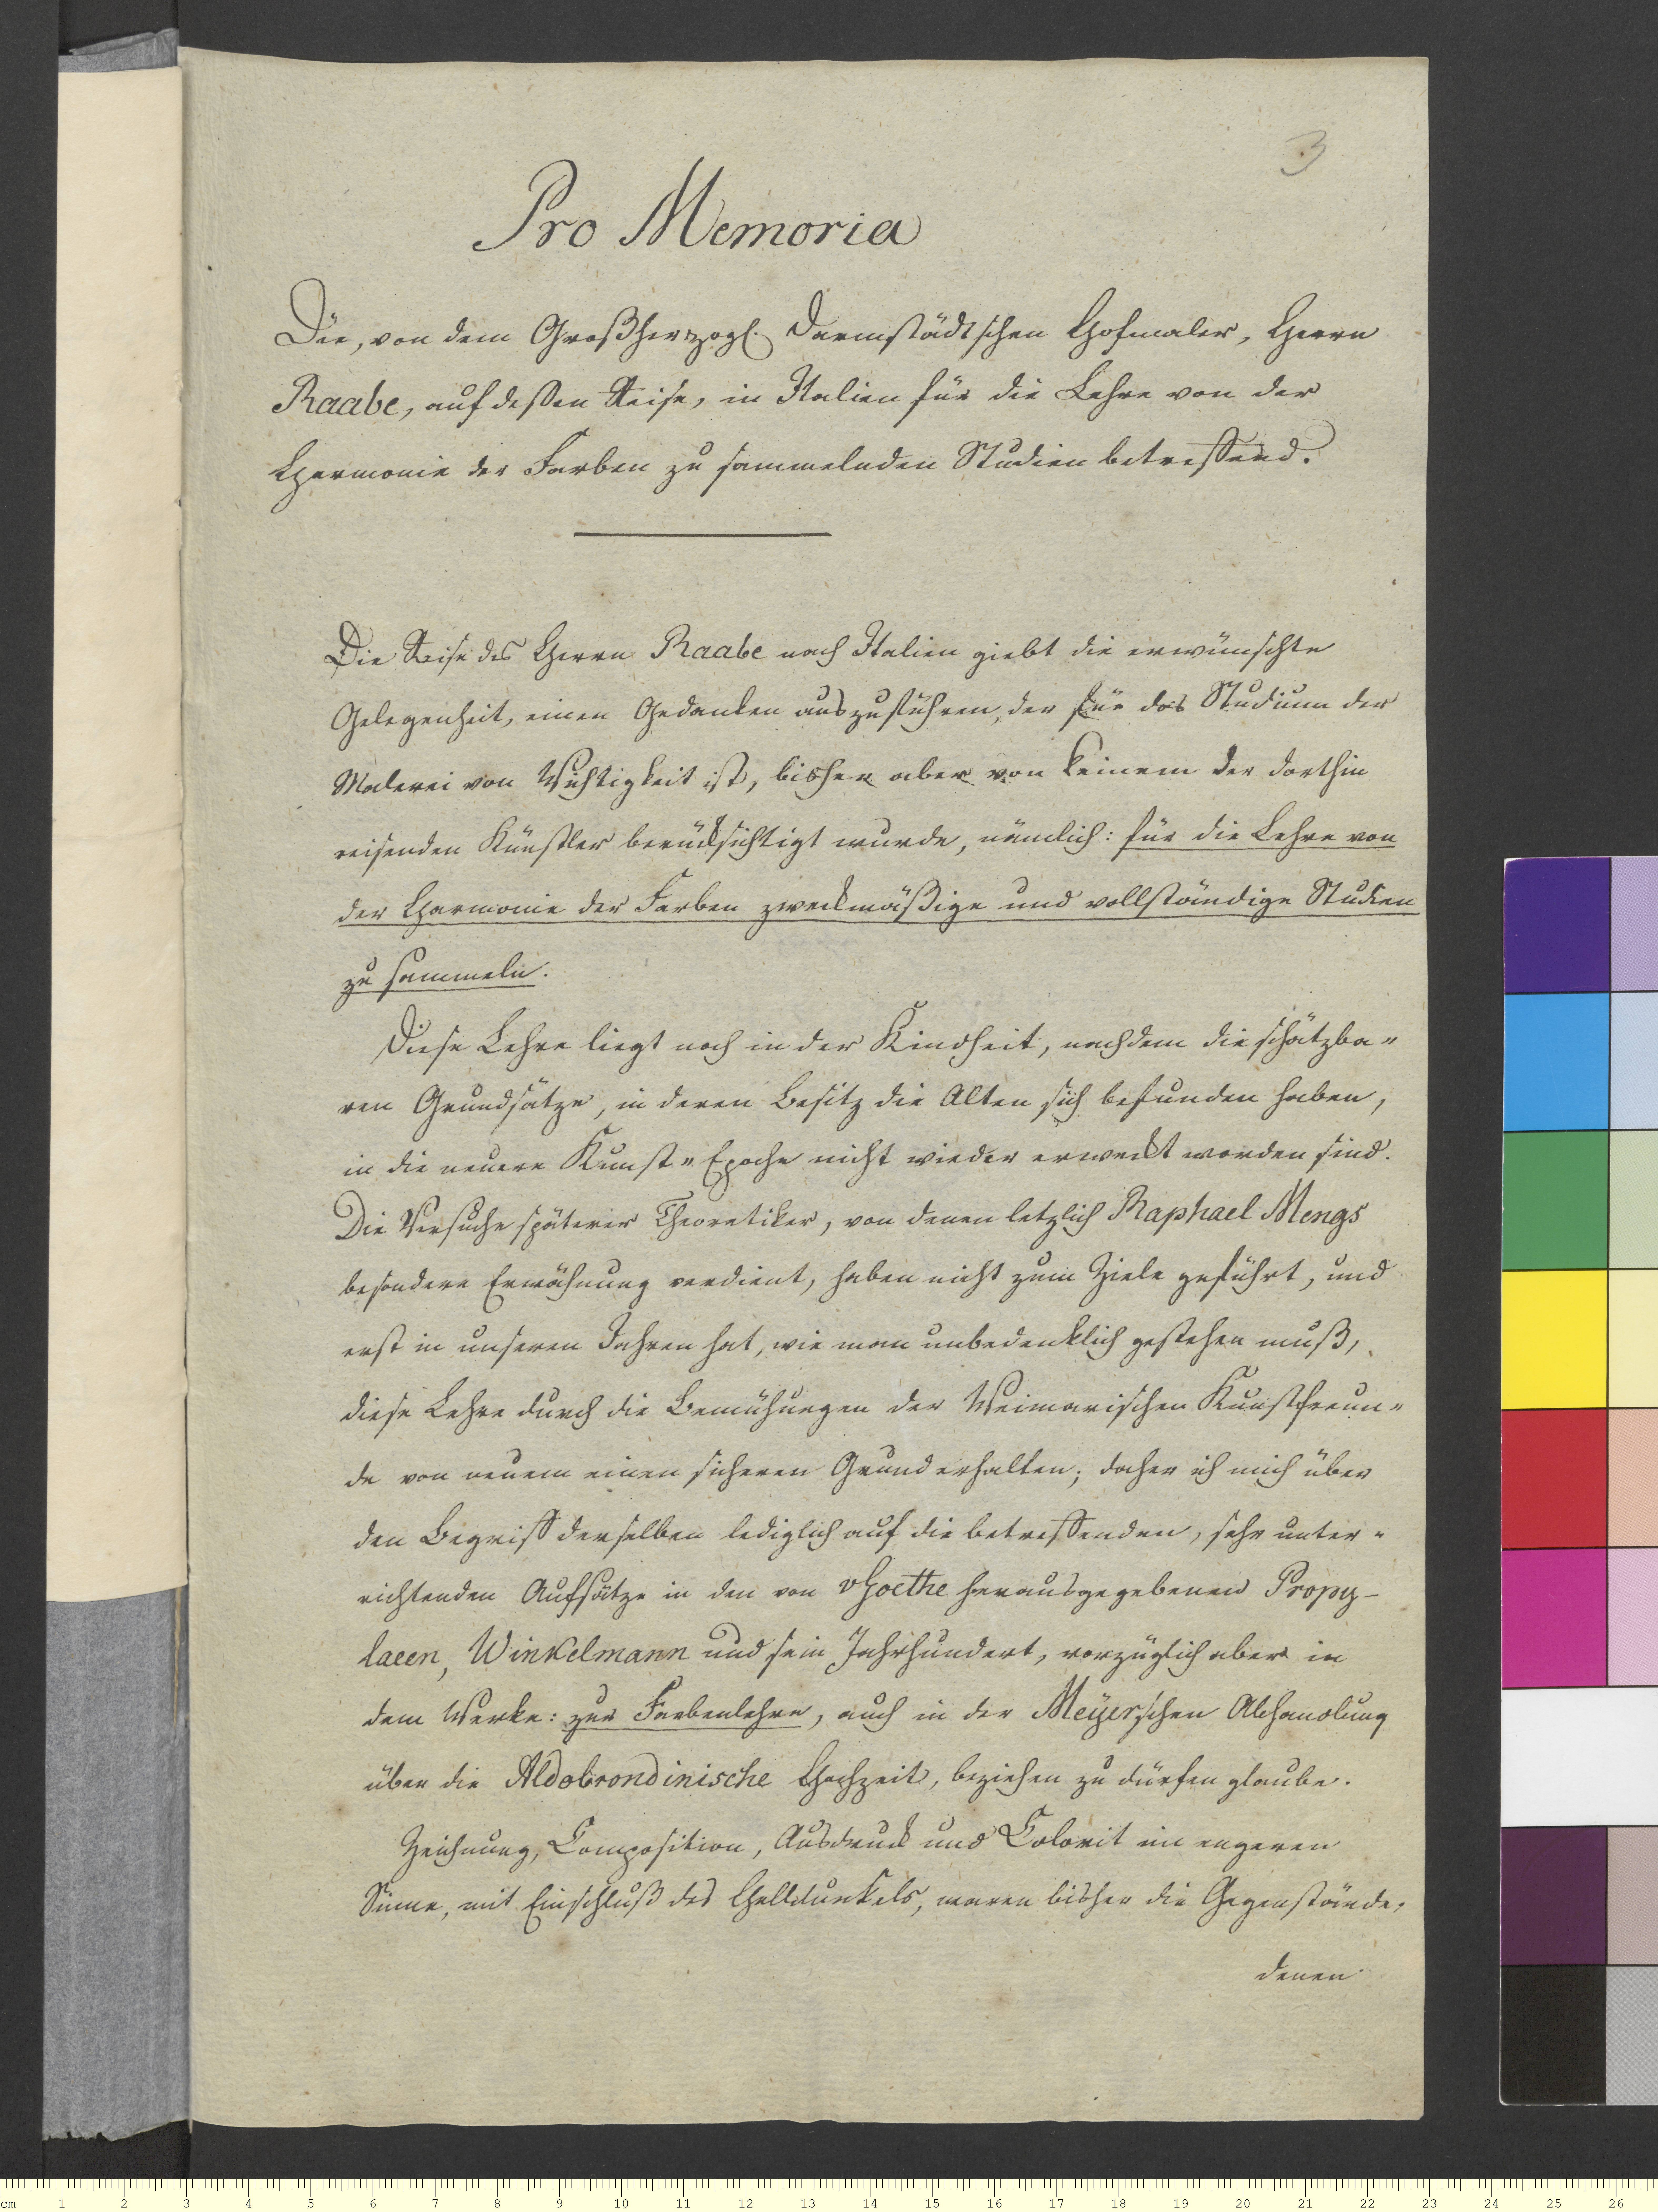 3
Pro Memoria
Die, von dem Großherzogl. Darmstädtschen Hofmaler, Herrn
Raabe, auf deßen Reise, in Italien für die Lehre von der
Harmonie der Farben zu sammelnden Studien betreffend.
Die Reise des Herrn Raabe nach Italien giebt die erwünschte
Gelegenheit, einen Gedanken auszuführen, der für das Studium der
Malerei von Wichtigkeit ist, bisher aber von keinem der dorthin
reisenden Künstler berücksichtigt wurde, nämlich: für die Lehre von
der Harmonie der Farben zweckmäßige und vollständige Studien
zu sammeln.
Diese Lehre liegt noch in der Kindheit, nachdem die schätzba-
ren Grundsätze, in deren Besitz die Alten sich befunden haben,
in die neuere Kunst-Epoche nicht wieder erweckt worden sind.
Die Versuche späterer Theoretiker, von denen letzlich Raphael Mengs
besondere Erwähnung verdient, haben nicht zum Ziele geführt, und
erst in unseren Jahren hat, wie man unbedenklich gestehen muß,
diese Lehre durch die Bemühungen der Weimarischen Kunstfreun-
de von neuem einen sicheren Grund erhalten; daher ich mich über
den Begriff derselben lediglich auf die betreffenden, sehr unter-
richtenden Aufsätze in den von vGoethe herausgegebenen Propy-
laeen, Winkelmann und sein Jahrhundert, vorzüglich aber in
dem Werke: zur Farbenlehre, auch in der Meyerschen Abhandlung
über die Aldobrondinische Hochzeit, beziehen zu dürfen glaube.
Zeichnung, Composition, Ausdruck und Colorit im engeren
Sinne, mit Einschluß des Helldunkels, waren bisher die Gegenstände,
denen
cm 1 2 3 4 5 6 7 8 9 10 11 12 13 14 15 16 17 18 19 20 21 22 23 24 25 26